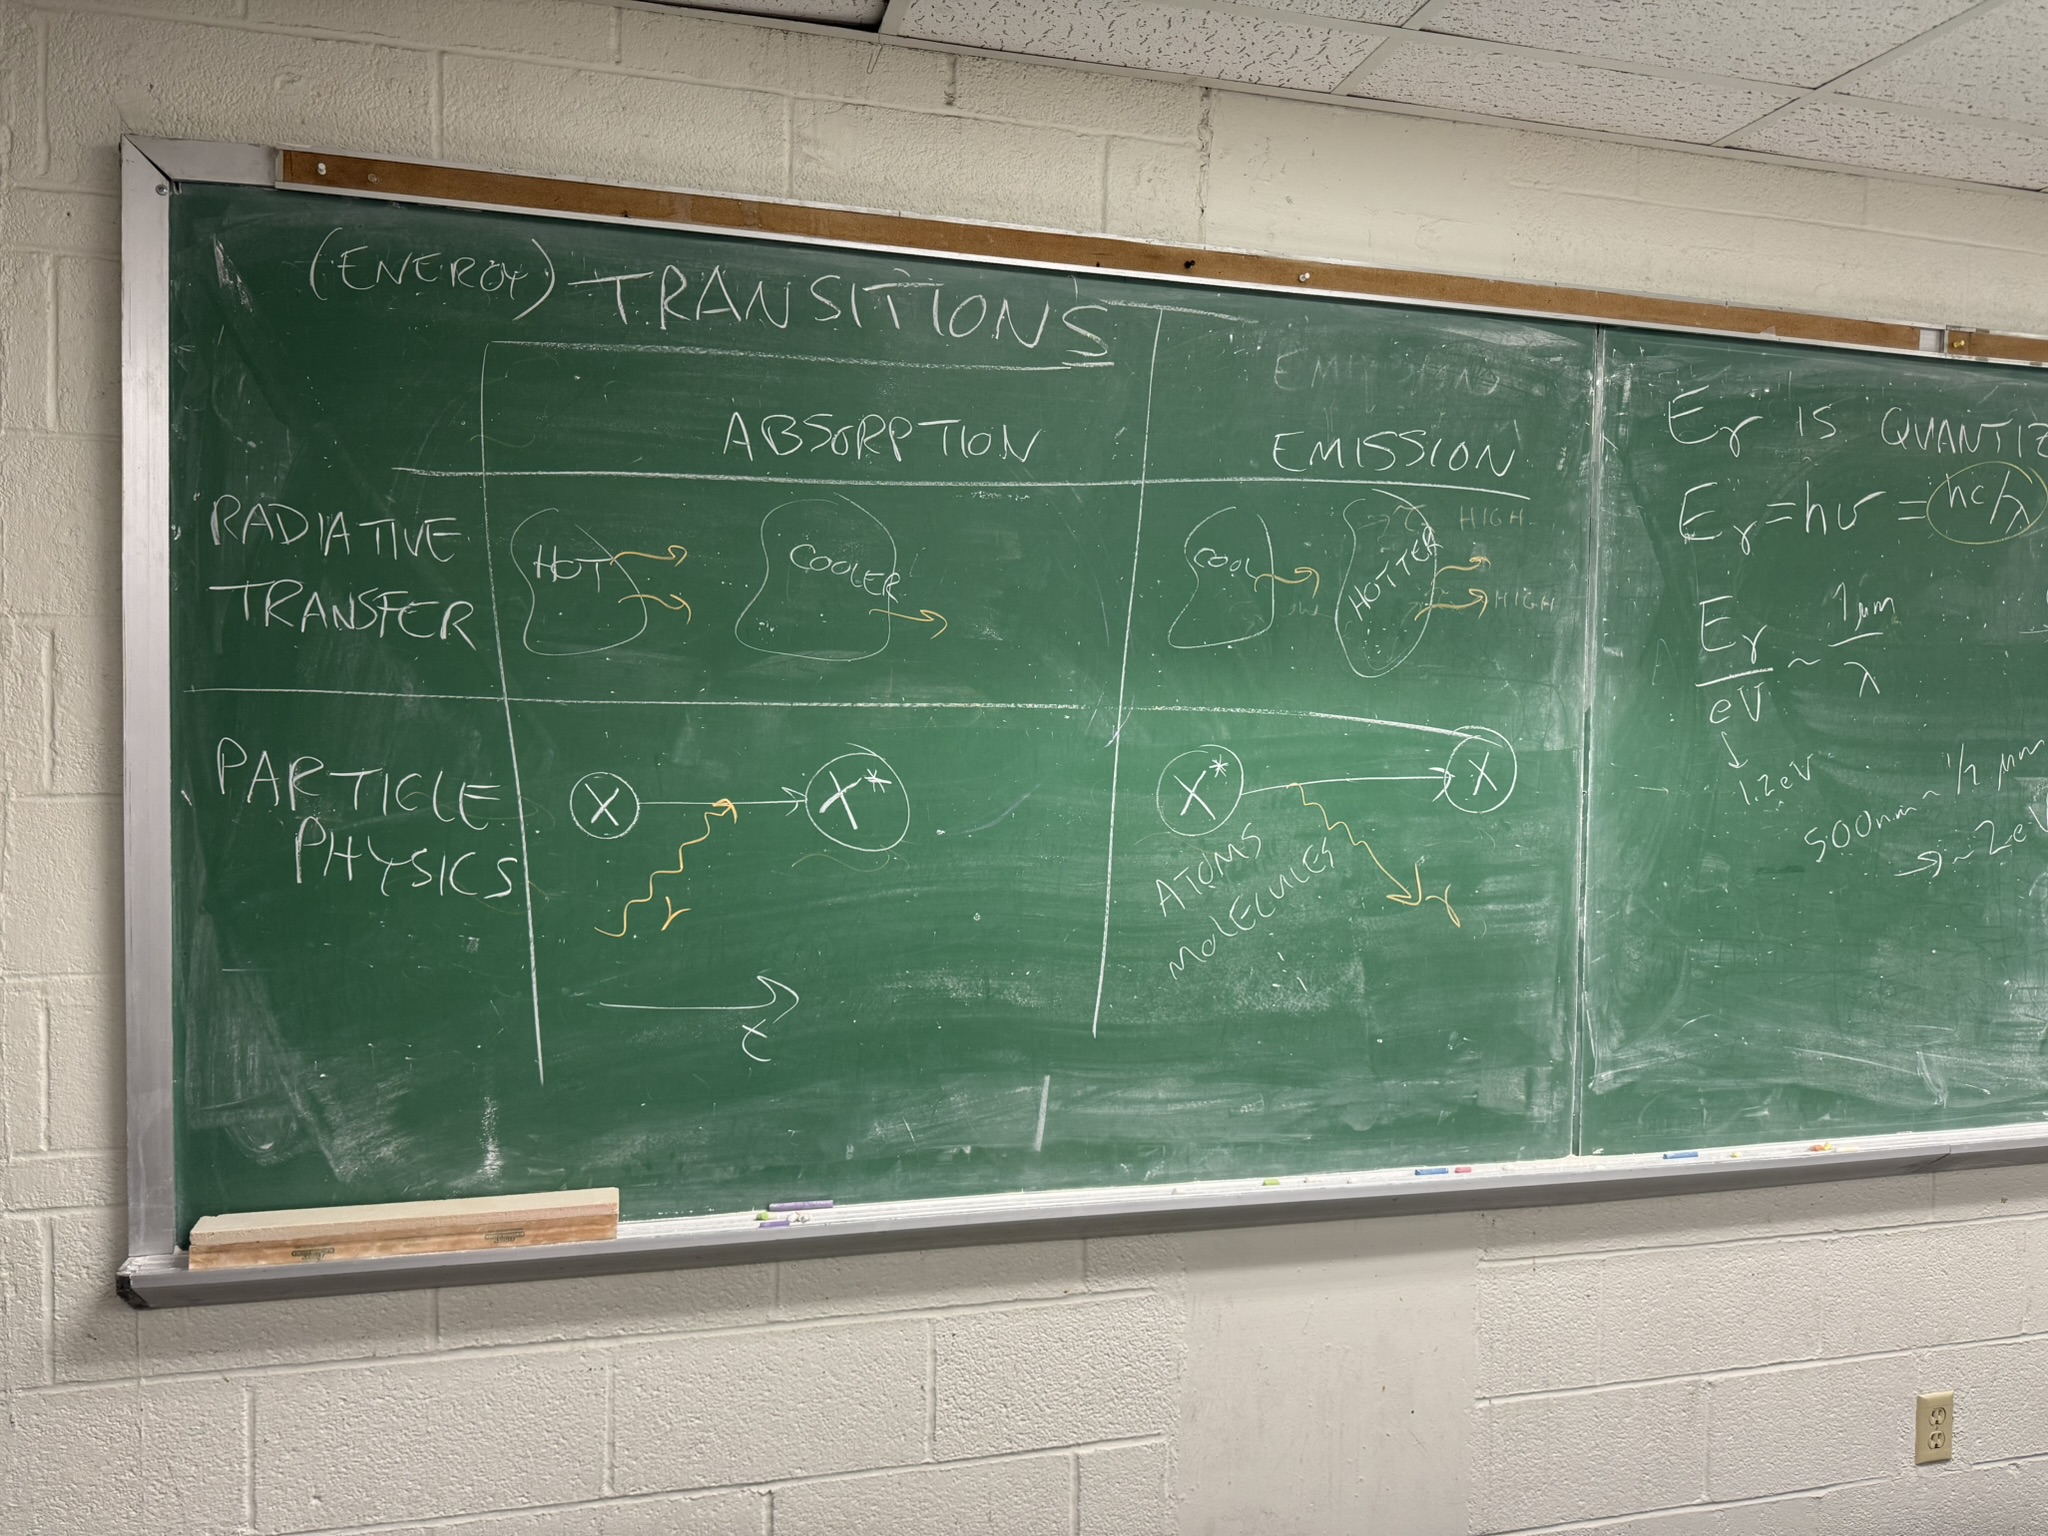 (ENERGY) TRANSITIONS
EMISSION
ABSORPTION
EMISSION
RADIATIVE
TRANSFER
HOT
COOLER
COOL
HOTTER
HIGH
HIGH
PARTICLE
PHYSICS
X
X*
γ
t
X*
X
γ
ATOMS
MOLECULES
Eγ IS QUANTIZ
Eγ = hν = hc/λ
Eγ/eV ~ 1μm/λ
↓
1.2eV
500nm ~ 1/2 μm
→ ~2eV